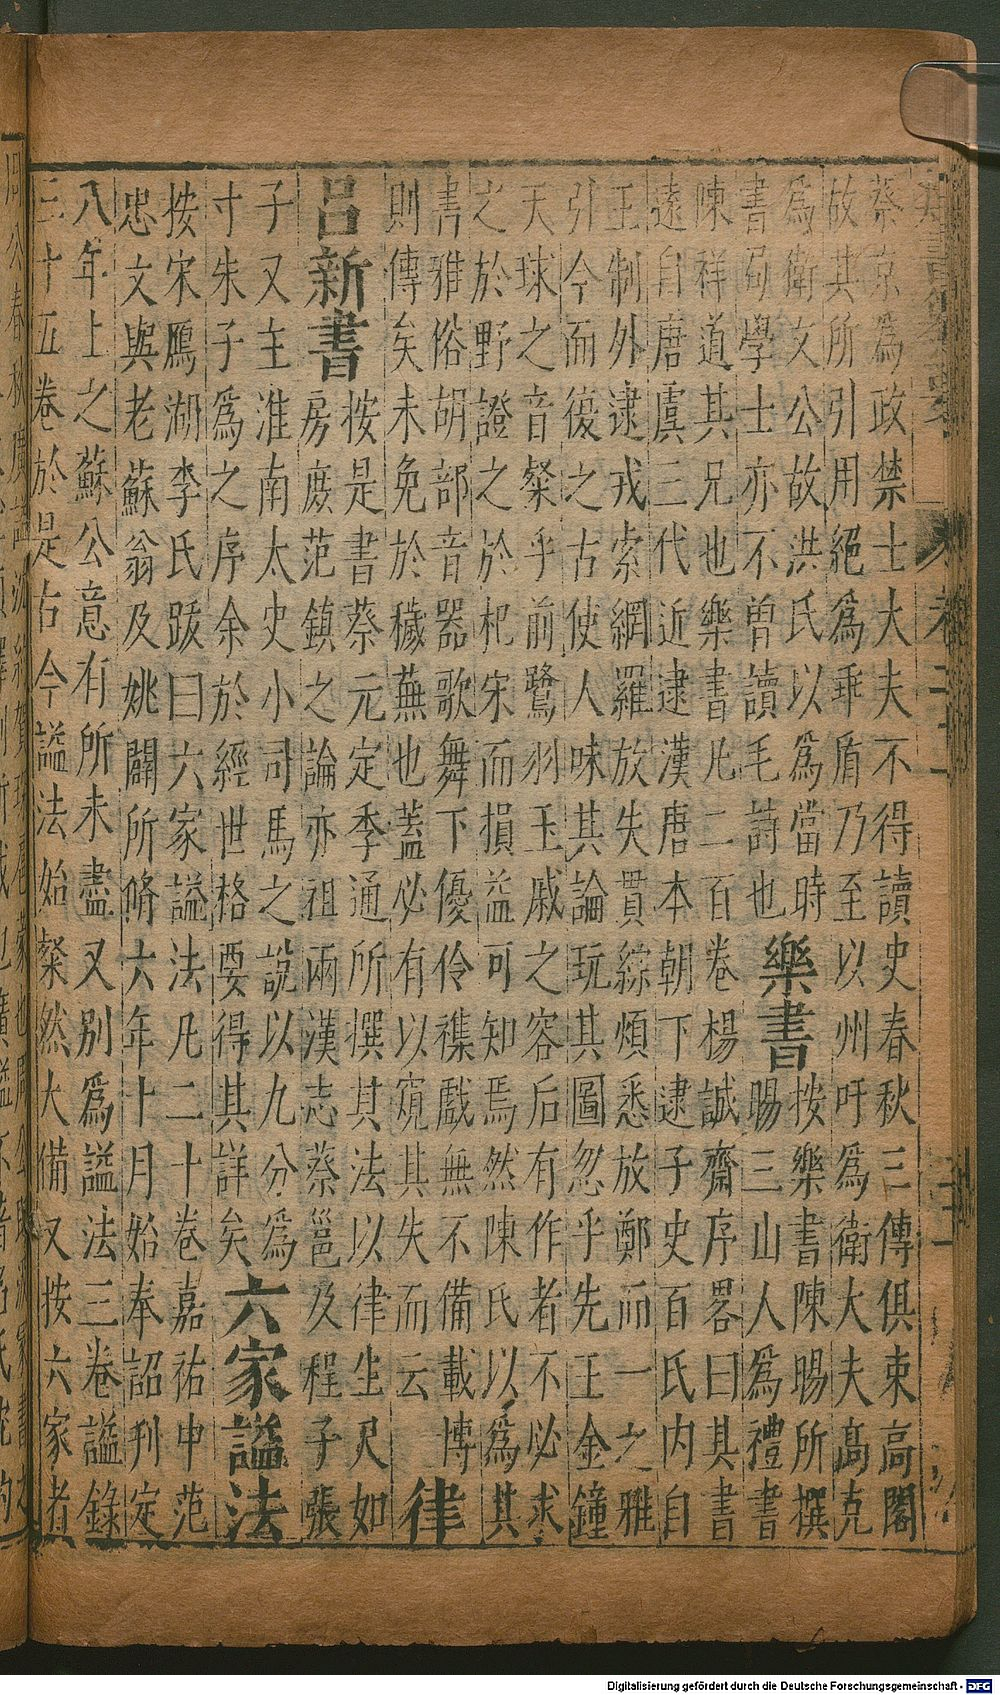 蔡京為政禁士大夫不得讀史春秋三傳俱束高閣
故其所引用絕為乖盾乃至以州吁為衛大夫高克
為衛文公故洪氏以為當時
書局學士亦不曾讀毛詩也
樂書
按樂書陳暘所撰
暘三山人為禮書
陳祥道其兄也樂書凡二百卷楊誠齋序畧曰其書
遠自唐虞三代近逮漢唐本朝下逮子史百氏內自
王制外逮戎索網羅放失貫綜煩悉放鄭而一之雅
引今而復之古使人味其論玩其圖忽乎先王金鐘
天球之音粲乎前鷺羽玉戚之容后有作者不必求
之於野證之於杞宋而損益可知焉然陳氏以為其
書雅俗胡部音器歌舞下優伶襍戲無不備載博
則傳矣未免於穢蕪也蓋必有以窺其失而云
律
呂新書
按是書蔡元定季通所撰其法以律生尺如
房庶范鎮之論亦祖兩漢志蔡邕及程子張
子又主淮南太史小司馬之說以九分為
寸朱子為之序余於經世格要得其詳矣
六家諡法
按宋鴈湖李氏跋曰六家諡法凡二十卷嘉祐申范
忠文與老蘇翁及姚闢所脩六年十月始奉詔刊定
八年上之蘇公意有所未盡又別為諡法三卷諡錄
三十五卷於是古今諡法始粲然大備又按六家者
Digitalisierung gefördert durch die Deutsche Forschungsgemeinschaft - DFG